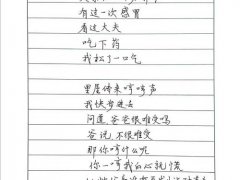 有这一次感冒
看过大夫
吃下药
我松了一口气
里屋传来哼哼声
我快步进去
问道 爸爸很难受吗
爸说 不很难受
那你哼什么呢
你一哼我的心就慌